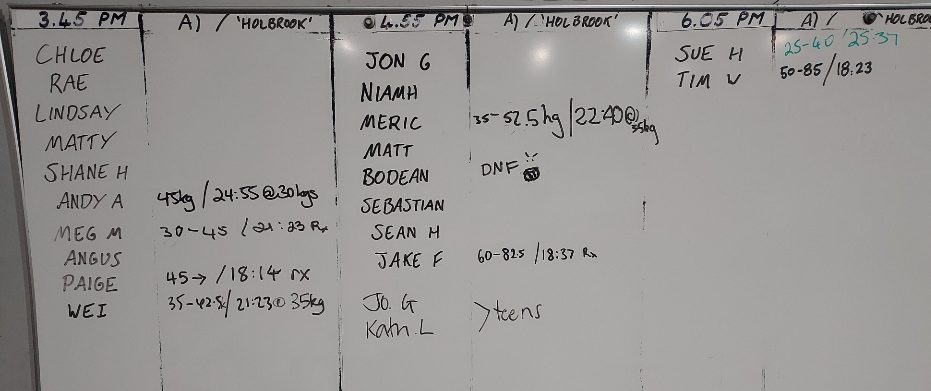 3.45 PM A) / 'HOLBROOK'
CHLOE
RAE
LINDSAY
MATTY
SHANE H
ANDY A 45kg / 24:55 @30kgs
MEG M 30-45 / 21:23 Rx
ANGUS
PAIGE 45→ / 18:14 rx
WEI 35-42.5/ 21:23@ 35kg
4.55 PM A) / 'HOLBROOK'
JON G
NIAMH
MERIC 35-52.5kg | 22:40@35kg
MATT
BODEAN DNF
SEBASTIAN
SEAN H
JAKE F 60-82.5 / 18:37 Rx
Jo. G
L
>teens
6.05 PM A) / HOLBROO
SUE H 25-40 / 25:37
TIM W 50-85 / 18:23